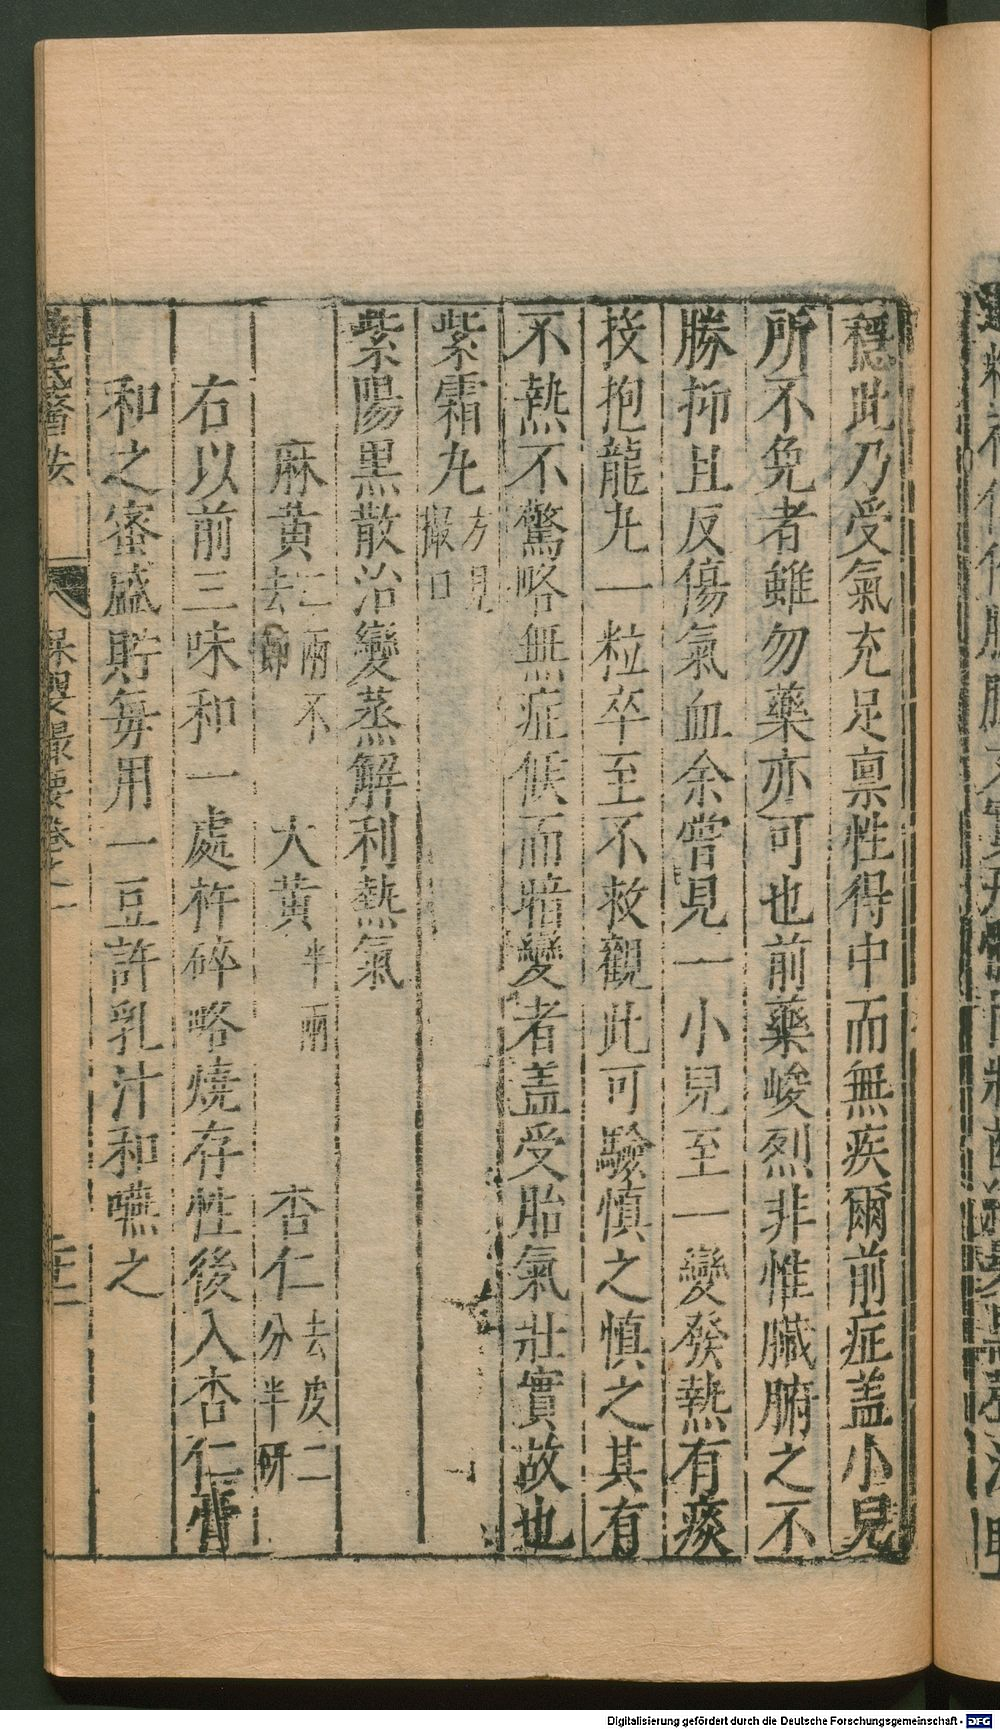 穩此乃受氣充足禀性得中而無疾爾前症盖小兒
所不免者雖勿藥亦可也前藥峻烈非惟臟腑之不
勝抑且反傷氣血余嘗見一小兒至一變發熱有痰
投抱龍丸一粒卒至不救觀此可驗慎之慎之其有
不熱不驚略無症候而暗變者盖受胎氣壯實故也
紫霜丸方見撮口
紫陽黒散治變蒸解利熱氣
麻黄二兩不去節 大黄半兩 杏仁去皮二分半研
右以前三味和一處杵碎略燒存性後入杏仁膏
和之蜜盛貯每用一豆許乳汁和嚥之
薛氏醫按 保嬰撮要卷之一 二十二
Digitalisierung gefördert durch die Deutsche Forschungsgemeinschaft - DFG